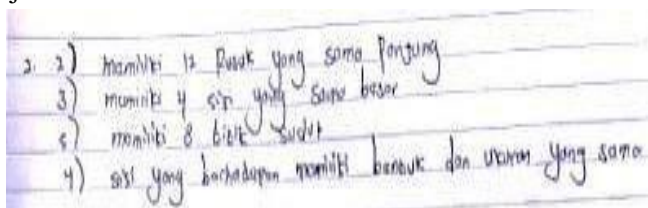 2. 2) memiliki 12 Rusuk yang sama Panjang
3) memiliki 4 sisi yang sama besar
5) memiliki 8 titik sudut
4) sisi yang berhadapan memiliki bentuk dan ukuran yang sama